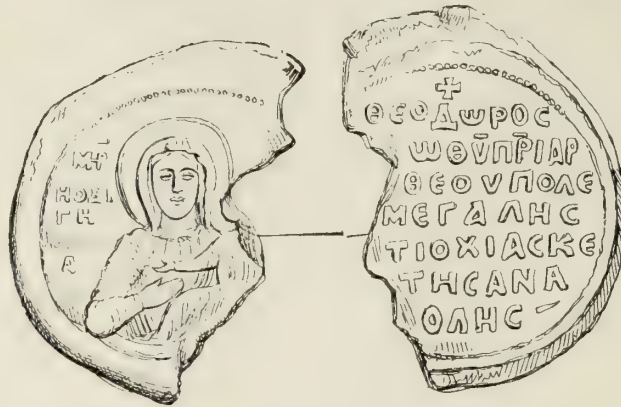 Μ̅Ρ̅
ΗΟΔΙ
ΓΗ
+
ΘΕΟΔωΡΟϹ
ωΘV̅Π̅ΡΙΑΡ
ΘΕΟVΠΟΛΕ
ΜΕΓΑΛΗϹ
ΤΙΟΧΙΑϹΚΕ
ΤΗϹΑΝΑ
ΟΛΗϹ